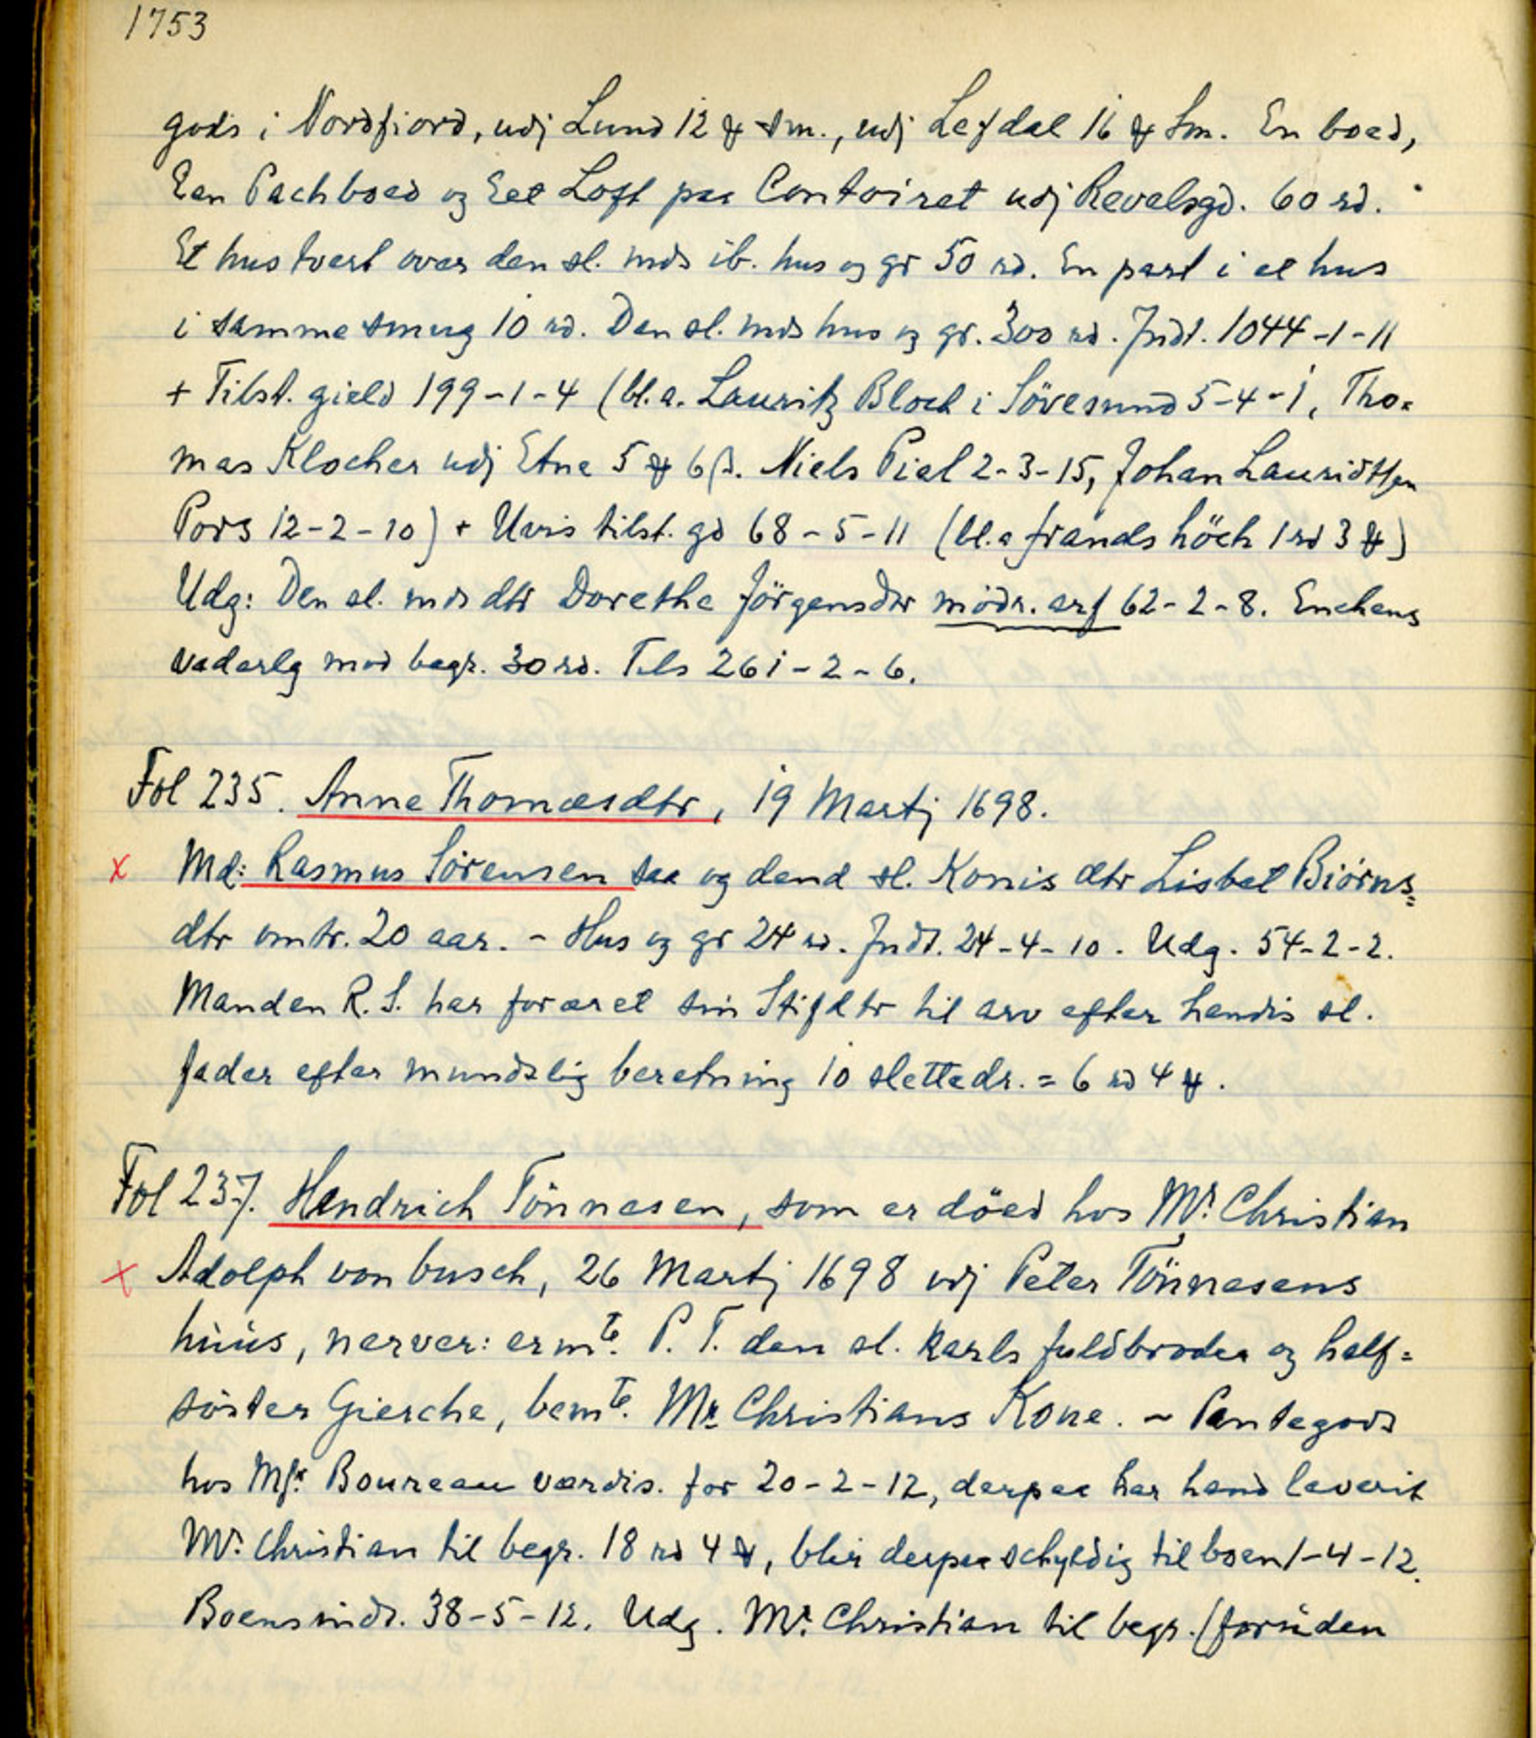 1753
gods i Nordfiord, udj Lund 12 ℔ sm., udj Lefdal 16 ℔ sm. En boed,
Een Pachboed og Eet Loft paa Contoiret udj Revelsgd. 60 rd.
Et hus tvert over den sl. mds ib. hus og gr 50 rd. En part i et hus
i samme smug 10 rd. Den sl. mds hus og gr. 300 rd. Indt. 1044-1-11
+ Tilst. gield 199-1-4 (bl.a. Lauritz Bloch i Sövesund 5-4-1, Tho=
mas Klocher udj Etne 5 ℔ 6 ß. Niels Pial 2-3-15, Johan Lauridtsen
Pors 12-2-10) + Uvis tilst. gd 68-5-11 (bl.a frands höch 1 rd 3 ℔)
Udg: Den sl. mds dtr Dorethe Jörgensdtr mödr. arf 62-2-8. Enchens
vederlg mod begr. 30 rd. Tils 261-2-6.
Fol 235. Anne Thomæsdtr, 19 Martj 1698.
x Md: Rasmus Sörensen saa og dend sl. Konis dtr Lisbet Biörns=
dtr omtr. 20 aar. - Hus og gr 24 rd. Indt. 24-4-10. Udg. 54-2-2.
Manden R. S. har foræret sin Stifdtr til arv efter hendis sl.
fader efter mundtlig beretning 10 slettedr. = 6 rd 4 ℔.
Fol 237. Hendrich Tönnesen, som er döed hos Mr. Christian
x Adolph von busch, 26 Martj 1698 udj Peter Tönnesens
huus, nerver: ermte. P. T. den sl. karls fuldbroder og half=
söster Giesche, bemte. Mr. Christians Kone. - Pantegods
hos Msr. Boureau værdis. for 20-2-12, derpaa har hand leverit
Mr. Christian til begr. 18 rd 4 ℔, blir derpaa schyldig til boen 1-4-12.
Boens indt. 38-5-12. Udg. Mr. Christian til begr. (foruden